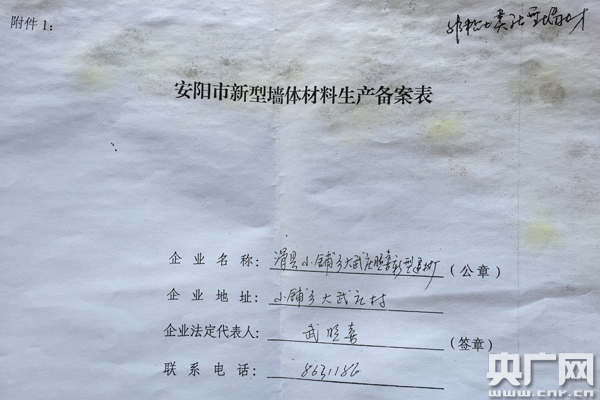 附件1:
非粘土类社型墙材
安阳市新型墙体材料生产备案表
企业名称: 滑县小铺乡大武庄旺喜新型建材厂 (公章)
企业地址: 小铺乡大武庄村
企业法定代表人: 武旺喜 (签章)
联系电话: 8631186
央广网
www.cnr.cn